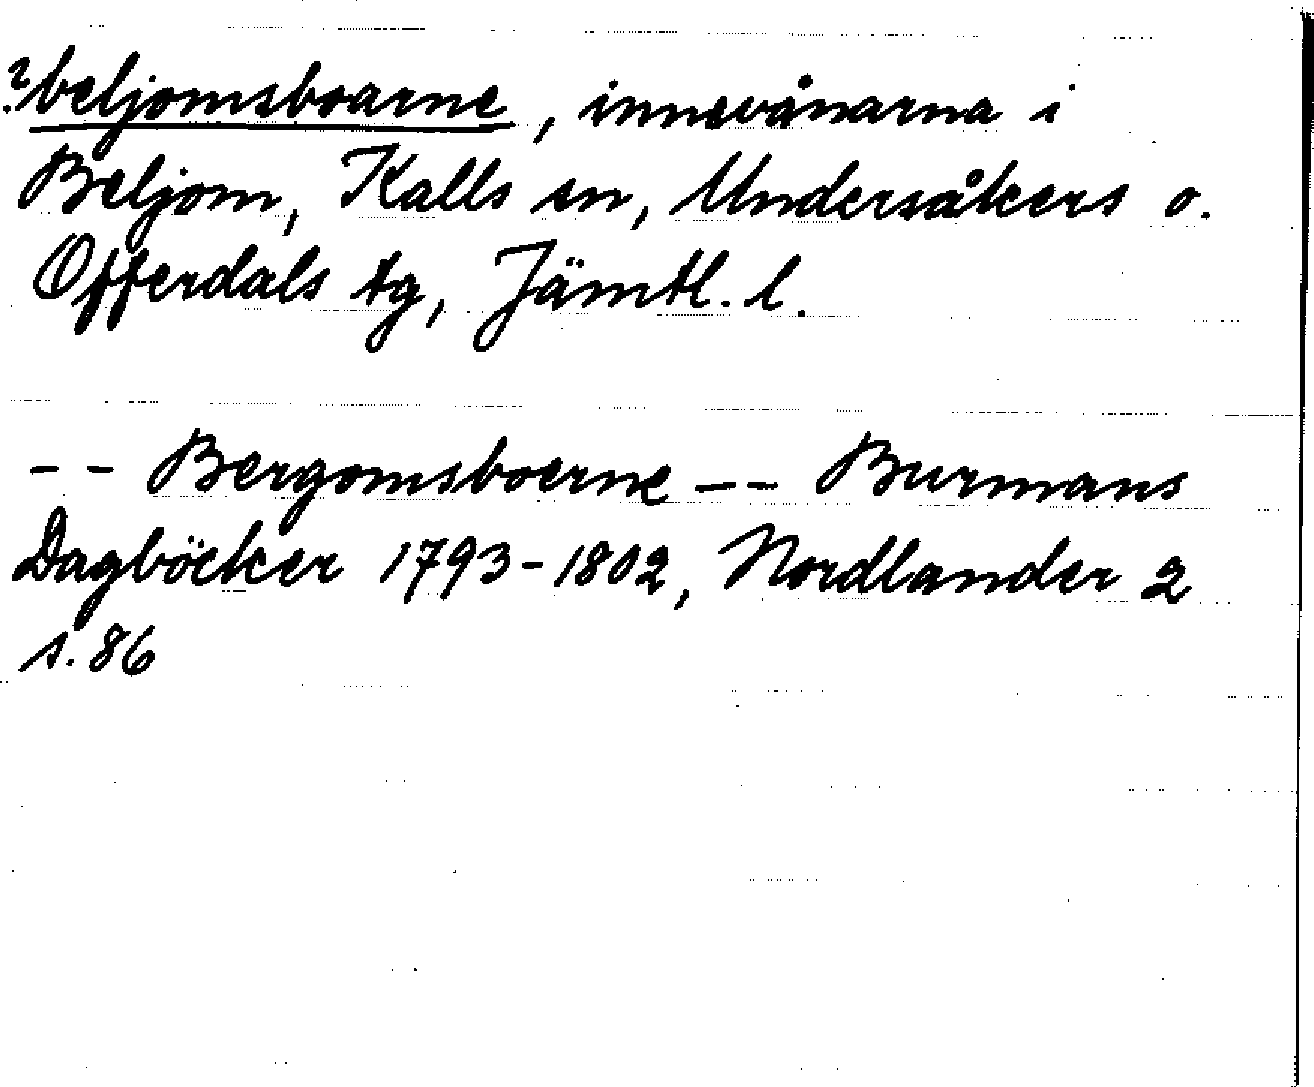 ?beljomsboarne, innevånarna i
Beljom, Kalls sn, Undersåkers o.
Offerdals tg, Jämtl. l.
-- Bergomsboerne -- Burmans
Dagböcker 1793-1802, Nordlander 2
s. 86